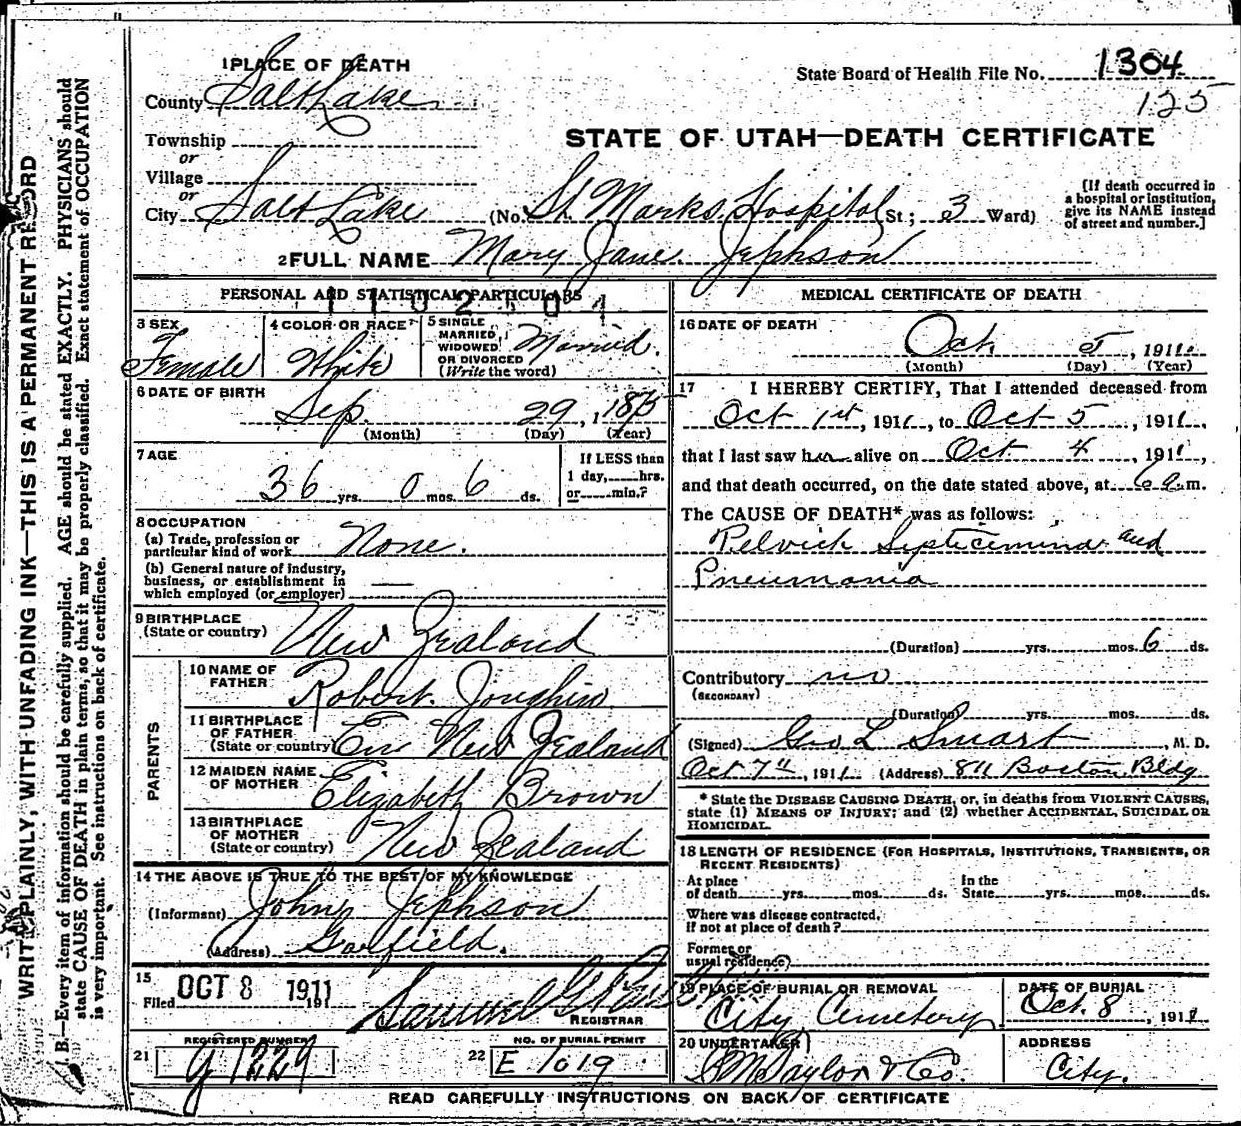 1 PLACE OF DEATH
State Board of Health File No. 1304
125
County Salt Lake
STATE OF UTAH—DEATH CERTIFICATE
Township
or
Village
or
City Salt Lake (No. St Marks Hospital St; 3 Ward)
[If death occurred in
a hospital or institution,
give its NAME instead
of street and number.]
2 FULL NAME Mary Jane Jephson
PERSONAL AND STATISTICAL PARTICULARS
3 SEX
Female
4 COLOR OR RACE
White
5 SINGLE,
MARRIED,
WIDOWED
OR DIVORCED
(Write the word)
Married.
6 DATE OF BIRTH
Sep. 29, 1875
(Month) (Day) (Year)
7 AGE
36 yrs. 0 mos. 6 ds.
If LESS than
1 day, hrs.
or min.?
8 OCCUPATION
(a) Trade, profession or
particular kind of work None.
(b) General nature of industry,
business, or establishment in
which employed (or employer)
9 BIRTHPLACE
(State or country) New Zealand
PARENTS
10 NAME OF
FATHER Robert Joughin
11 BIRTHPLACE
OF FATHER
(State or country) New Zealand
12 MAIDEN NAME
OF MOTHER Elizabeth Brown
13 BIRTHPLACE
OF MOTHER
(State or country) New Zealand
14 THE ABOVE IS TRUE TO THE BEST OF MY KNOWLEDGE
(Informant) John Jephson
(Address) Garfield.
15
Filed OCT 8 1911 191
Samuel G.
REGISTRAR
REGISTERED NUMBER
21 g 1229
NO. OF BURIAL PERMIT
22 E 1019
MEDICAL CERTIFICATE OF DEATH
16 DATE OF DEATH
Oct 5, 1911
(Month) (Day) (Year)
17 I HEREBY CERTIFY, That I attended deceased from
Oct 1st, 1911, to Oct 5, 1911,
that I last saw her alive on Oct 4, 1911,
and that death occurred, on the date stated above, at 6 a.m.
The CAUSE OF DEATH* was as follows:
Pelvick Septicemina and
Pneumonia
(Duration) yrs. mos. 6 ds.
Contributory no
(SECONDARY)
(Duration) yrs. mos. ds.
(Signed) Geo L Smart, M. D.
Oct 7th, 1911 (Address) 811 Boston Bldg
* State the DISEASE CAUSING DEATH, or, in deaths from VIOLENT CAUSES,
state (1) MEANS OF INJURY; and (2) whether ACCIDENTAL, SUICIDAL OR
HOMICIDAL.
18 LENGTH OF RESIDENCE (FOR HOSPITALS, INSTITUTIONS, TRANSIENTS, OR
RECENT RESIDENTS)
At place
of death yrs. mos. ds.
In the
State yrs. mos. ds.
Where was disease contracted,
If not at place of death?
Former or
usual residence)
19 PLACE OF BURIAL OR REMOVAL
City Cemetery
DATE OF BURIAL
Oct. 8, 1911
20 UNDERTAKER
S M Taylor & Co.
ADDRESS
City.
READ CAREFULLY INSTRUCTIONS ON BACK OF CERTIFICATE
WRITE PLAINLY, WITH UNFADING INK—THIS IS A PERMANENT RECORD
B.—Every item of information should be carefully supplied. AGE should be stated EXACTLY. PHYSICIANS should
state CAUSE OF DEATH in plain terms, so that it may be properly classified. Exact statement of OCCUPATION
is very important. See instructions on back of certificate.